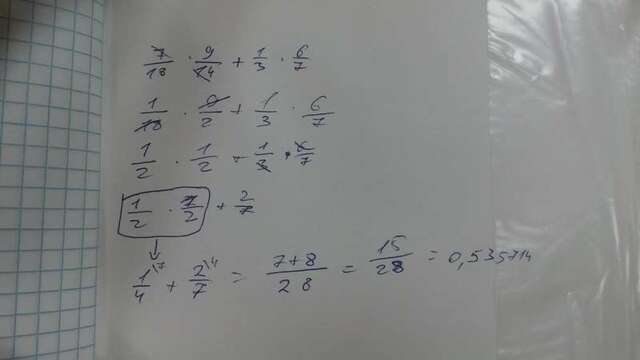 7/18 · 9/14 + 1/3 · 6/7
1/18 · 9/2 + 1/3 · 6/7
1/2 · 1/2 + 1/3 · 6/7
1/2 · 1/2 + 2/7
1\7/4 + 2\4/7 = 7+8/28 = 15/28 = 0,535714